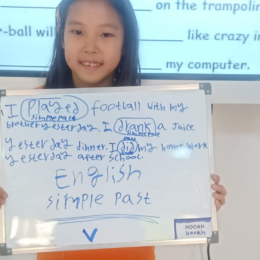 on the trampolin
-ball will
like crazy in
my computer.
I played football with my
simple past
brother yesterday. I drank a juice
simple past
yesterday dinner. I did my home work
yesterday after school.
English
simple past
V